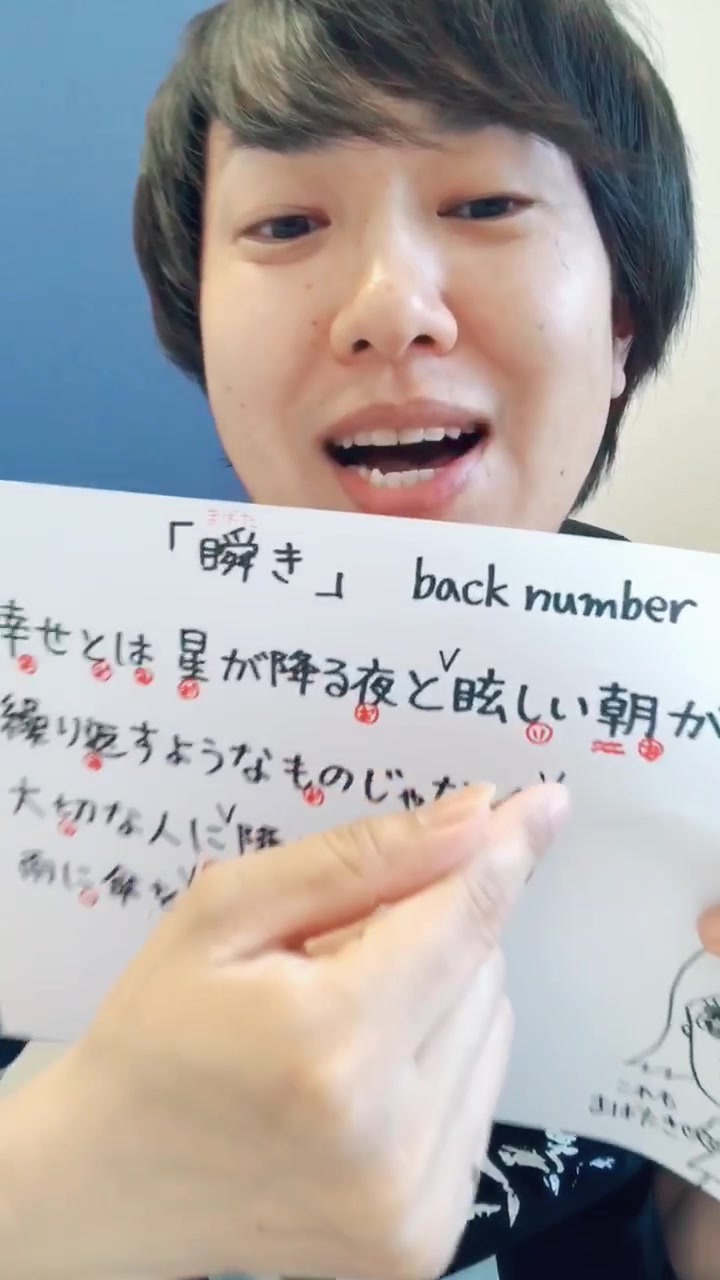 まばた
「瞬き」 back number
幸せとは 星が降る夜と 眩しい 朝が
繰り返すようなものじゃな
大切な人に 降
雨に 傘を
これも
まばたき